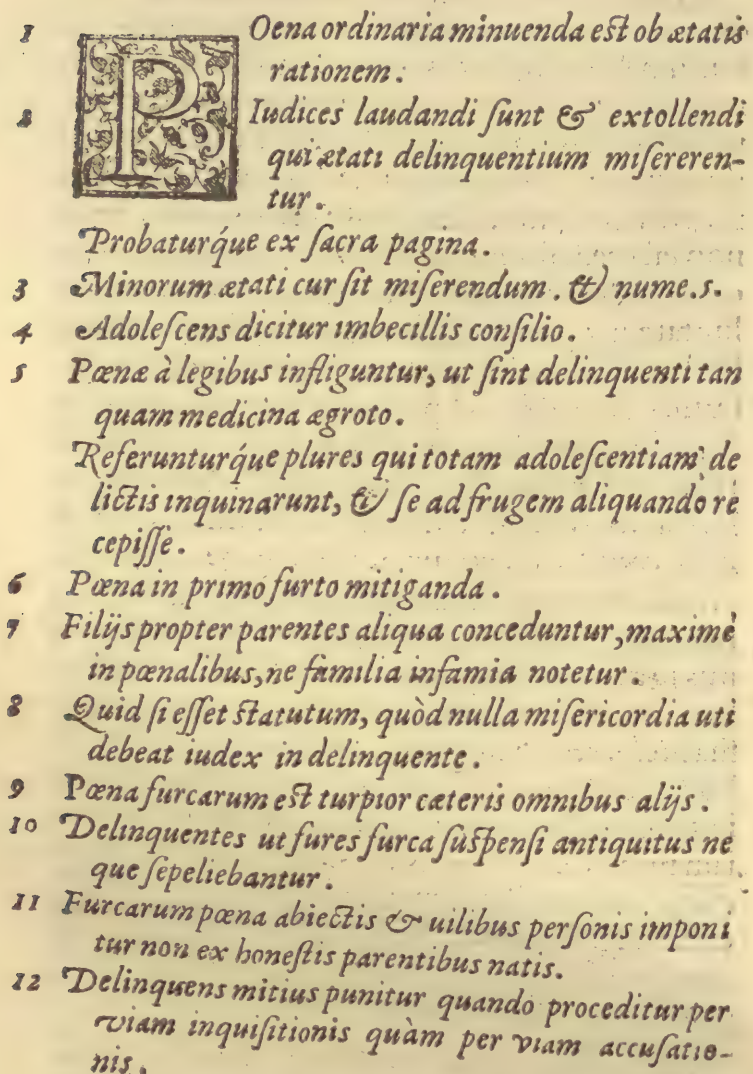 1 POena ordinaria minuenda est ob ætatis
rationem.
2 Iudices laudandi sunt & extollendi
qui ætati delinquentium misereren-
tur.
Probaturq́ue ex sacra pagina.
3 Minorum ætati cur sit miserendum. & nume.5.
4 Adolescens dicitur imbecillis consilio.
5 Pœnæ à legibus infliguntur, ut sint delinquenti tan
quam medicina ægroto.
Referunturq́ue plures qui totam adolescentiam de
lictis inquinarunt, & se ad frugem aliquando re
cepisse.
6 Pœna in primo furto mitiganda.
7 Filijs propter parentes aliqua conceduntur, maximè
in pœnalibus, ne familia infamia notetur.
8 Quid si esset statutum, quòd nulla misericordia uti
debeat iudex in delinquente.
9 Pœna furcarum est turpior cæteris omnibus alijs.
10 Delinquentes ut fures furca suspensi antiquitus ne
que sepeliebantur.
11 Furcarum pœna abiectis & uilibus personis imponi
tur non ex honestis parentibus natis.
12 Delinquens mitius punitur quando proceditur per
viam inquisitionis quàm per viam accusatio-
nis.